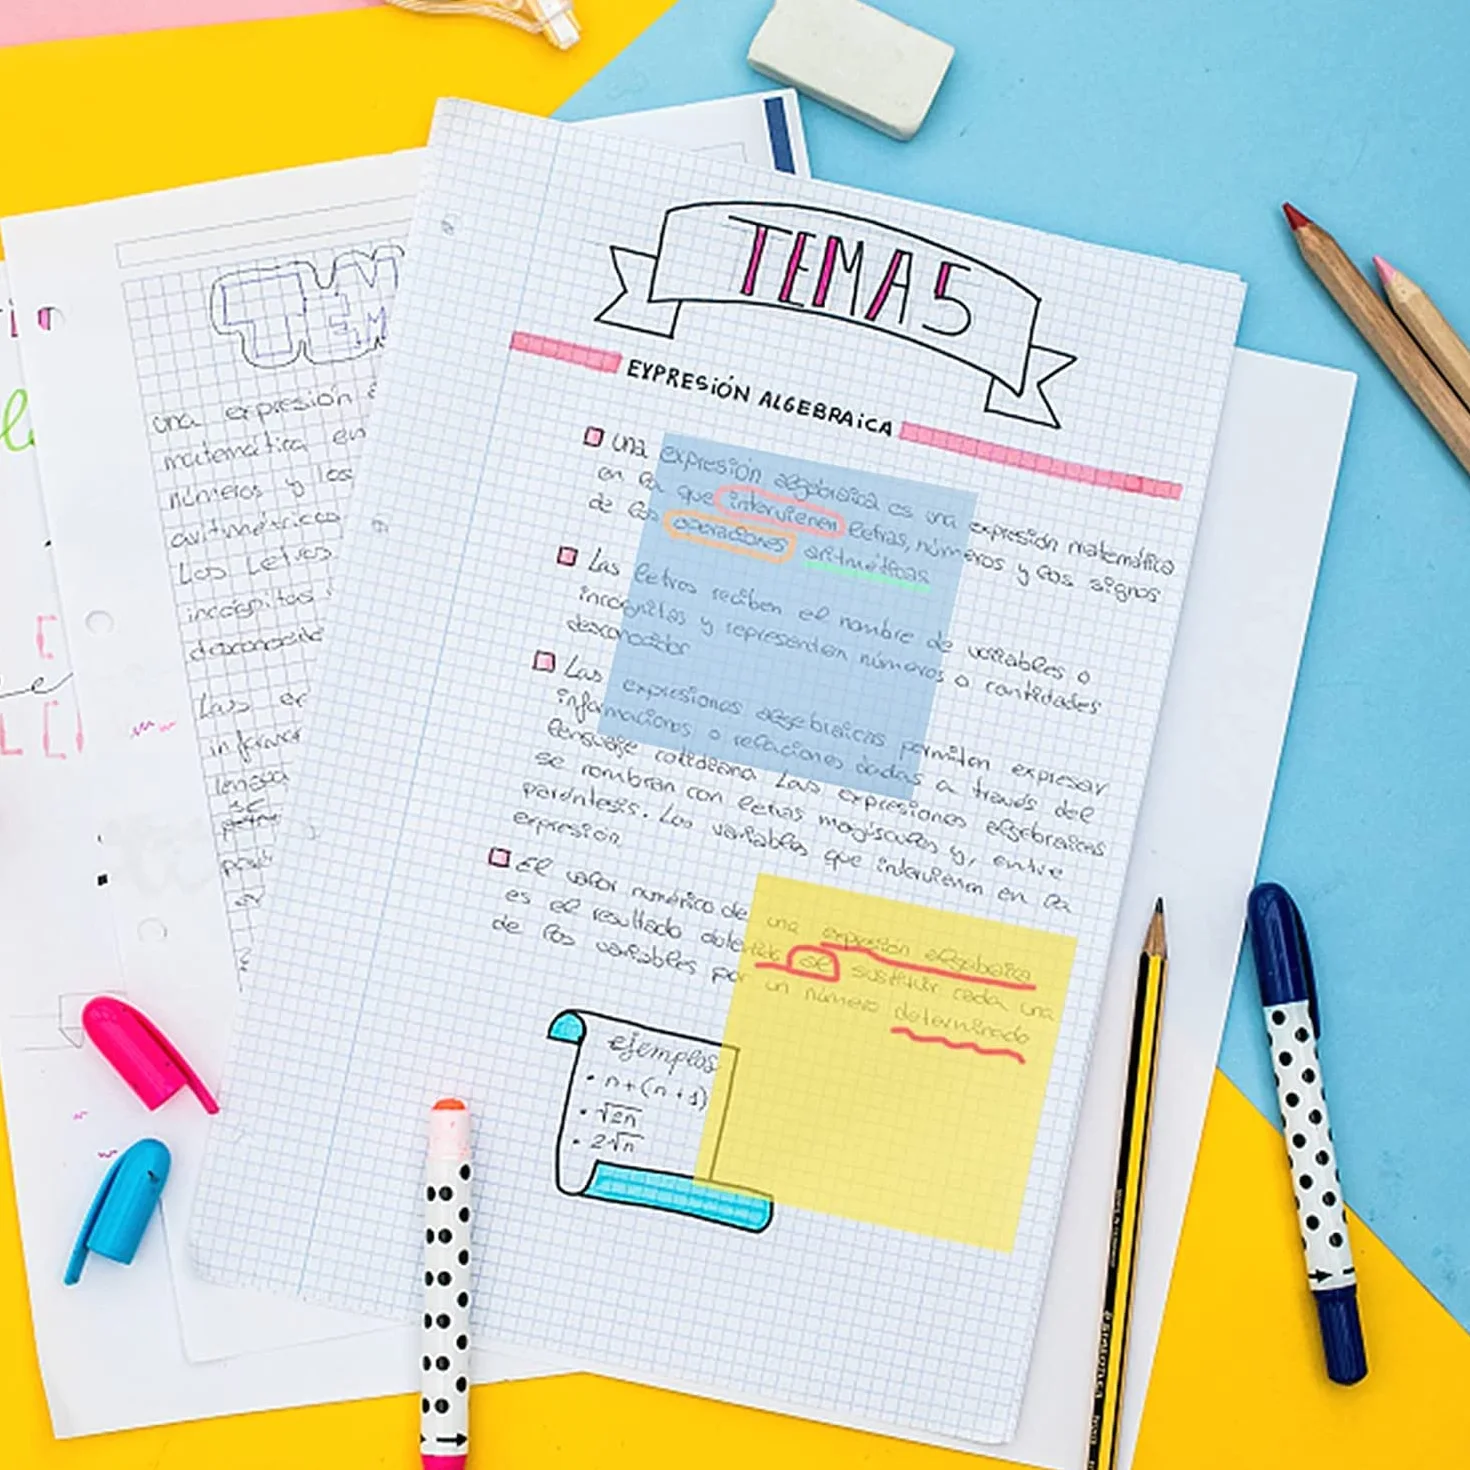 TEMA 5
EXPRESIÓN ALGEBRAICA
Una expresión algebraica es una expresión matemática
en la que intervienen letras, números y los signos
de las operaciones aritméticas
Las letras reciben el nombre de variables o
incógnitas y representan números o cantidades
desconocidas
Las expresiones algebraicas permiten expresar
informaciones o relaciones dadas a través del
lenguaje cotidiano. Las expresiones algebraicas
se nombran con letras mayúsculas y, entre
paréntesis. Las variables que intervienen en la
expresión.
El valor numérico de una expresión algebraica
es el resultado obtenido al sustituir cada una
de las variables por un número determinado
ejemplos
• n+(n+1)
• √2n
• 2√n
TEM
una expresión
matemática en
números y los
aritméticas
Las letras
incógnitas
Las